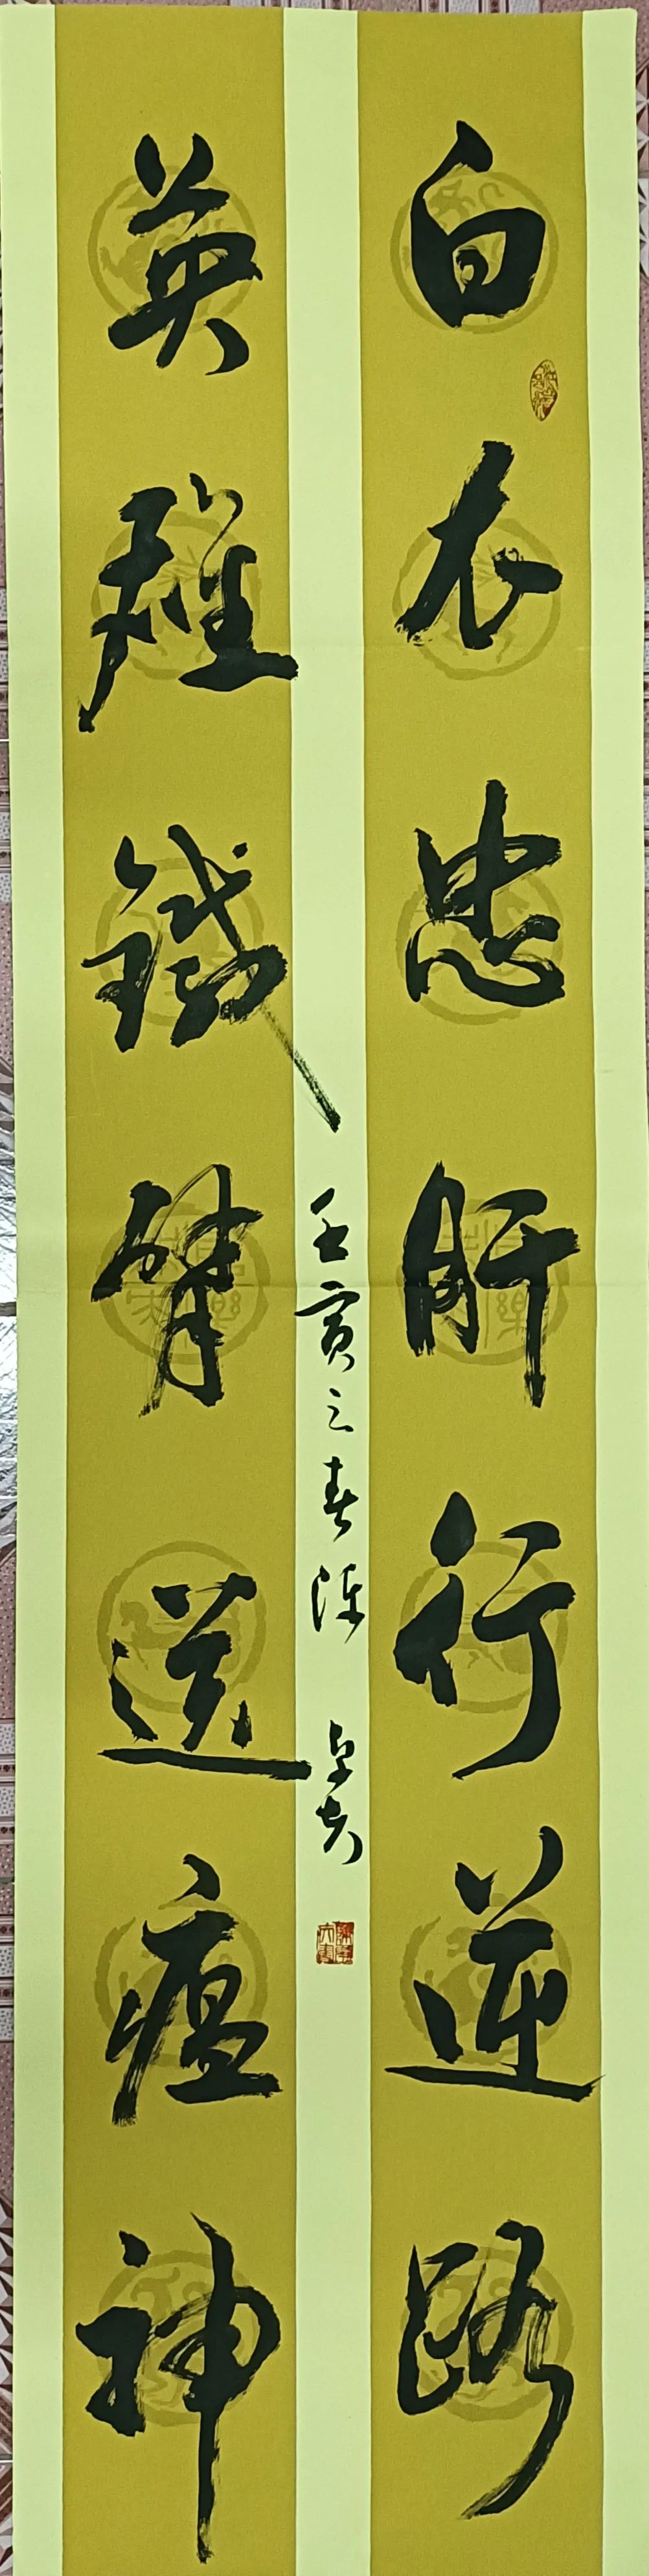 白衣忠肝行逆路
英雄鐵臂送瘟神
壬寅之春陳